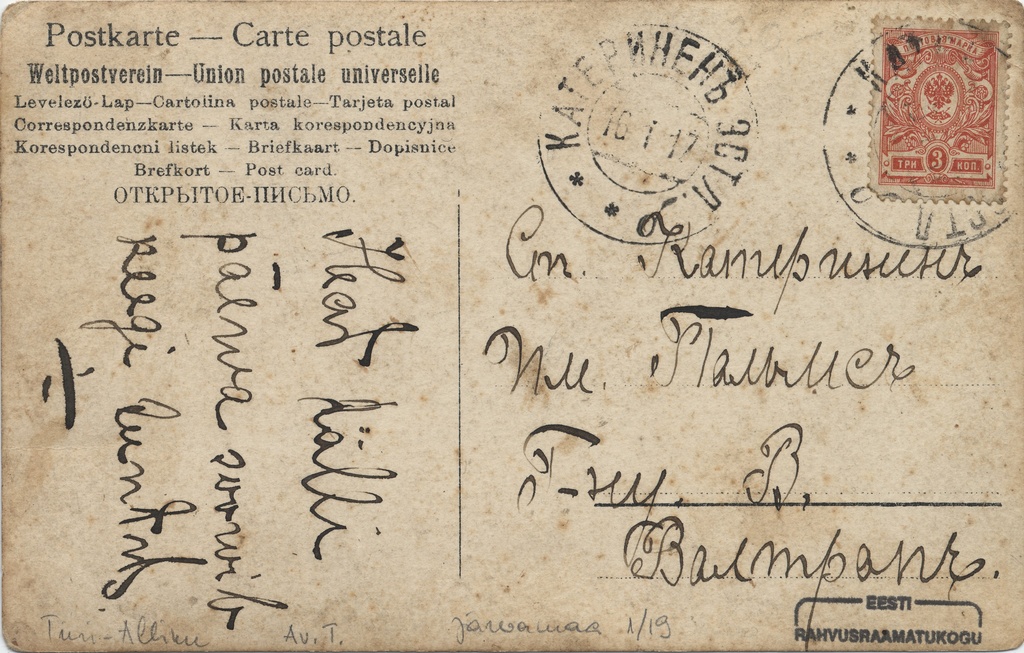 Postkarte — Carte postale
Weltpostverein—Union postale universelle
Levelező-Lap—Cartolina postale—Tarjeta postal
Correspondenzkarte — Karta korespondencyjna
Korespondencni listek — Briefkaart — Dopisnice
Brefkort — Post card.
ОТКРЫТОЕ-ПИСЬМО.
КАТЕРИНЕНЪ ЭСТЛ.
16 1 17
ПОЧТОВАЯ МАРКА
ТРИ 3 КОП.
ЭСТЛ
Ст. Катрининъ
Им. Пальмсъ
Г-ну. В.
Валтранъ.
Head
päewa soowib
keegi
Türi-Alliku Av. T. Järvamaa 1/19
EESTI
RAHVUSRAAMATUKOGU